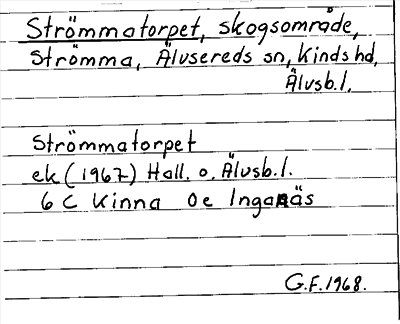 Strömmatorpet, skogsområde,
Strömma, Älvsereds sn, Kinds hd,
Älvsb.l.
Strömmatorpet
ek (1967) Hall. o. Älvsb.l.
6 C Kinna 0e Inganäs
G.F.1968.